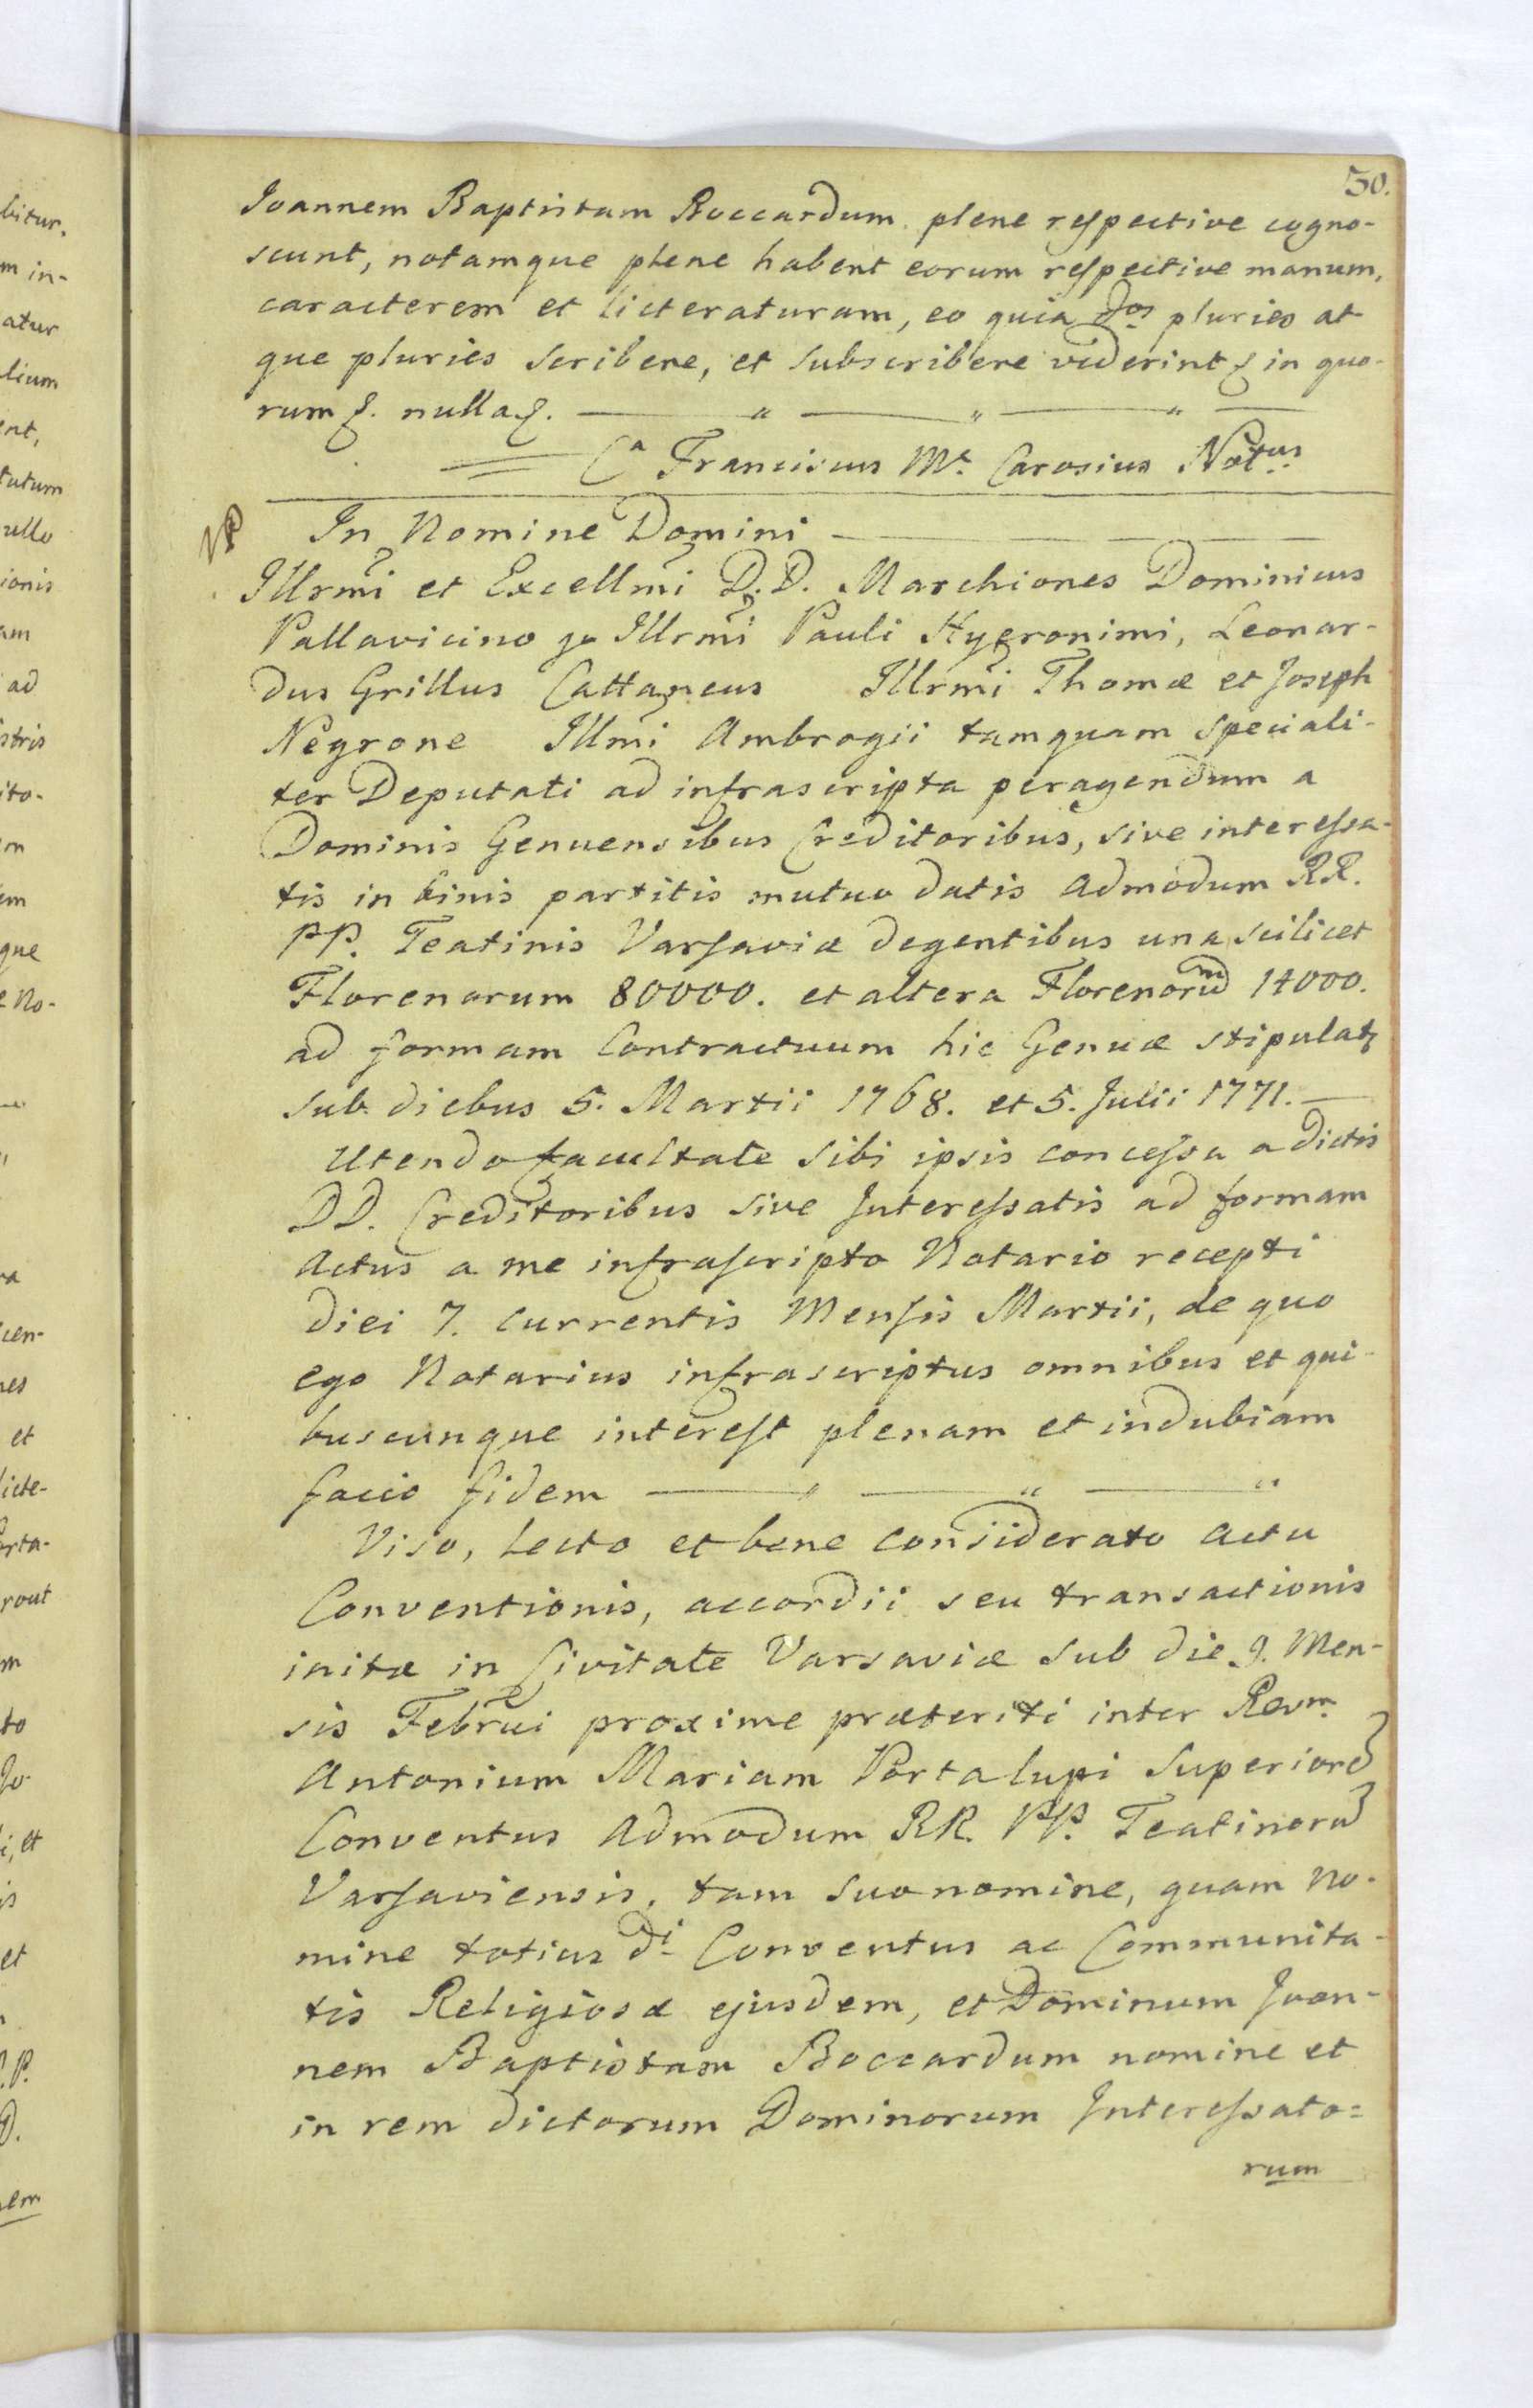 50.
Joannem Baptistam Boccardum plene respective cogno-
scunt, notamque plene habent eorum respective manum,
caracterem et licteraturam, eo quia dos pluries at
que pluries scribere, et subscribere viderint & in quo-
rum &. nulla &.
Ca Franciscus Ma. Carosius Notus
In Nomine Domini
Illrmi et Excellmi D.D. Marchiones Dominicus
Pallavicino qo Illrmi Pauli Hyeronimi, Leonar-
dus Grillus Cattaneus Illrmi Thomæ et Joseph
Negrone Illmi Ambrogii tamquam speciali-
ter Deputati ad infrascripta peragendum a
Dominis Genuensibus Creditoribus, sive interessa-
tis in binis partitis mutuo datis admodum RR.
PP. Teatinis Varsaviæ degentibus una scilicet
Florenorum 80000. et altera Florenorum 14000.
ad formam Contractuum hic Genuæ stipulat
sub diebus 5. Martii 1768. et 5. Julii 1771.
Utendo facultate sibi ipsis concessa a dictis
DD. Creditoribus sive Interessatis ad formam
actus a me infrascripto Notario recepti
diei 7. currentis Mensis Martii, de quo
ego Notarius infrascriptus omnibus et qui-
buscunque interest plenam et indubiam
facio fidem
Viso, lecto et bene considerato actu
Conventionis, accordii seu transactionis
initæ in Civitate Varsaviæ sub die 9. Men-
sis Februi proxime præteriti inter Revm.
Antonium Mariam Portalupi Superiore
Conventus admodum RR. PP. Teatinoru
Varsaviensis, tam suo nomine, quam no-
mine totius di Conventus ac Communita-
tis Religiosæ ejusdem, et Dominum Joan-
nem Baptistam Boccardum nomine et
in rem dictorum Dominorum Interessato=
rum